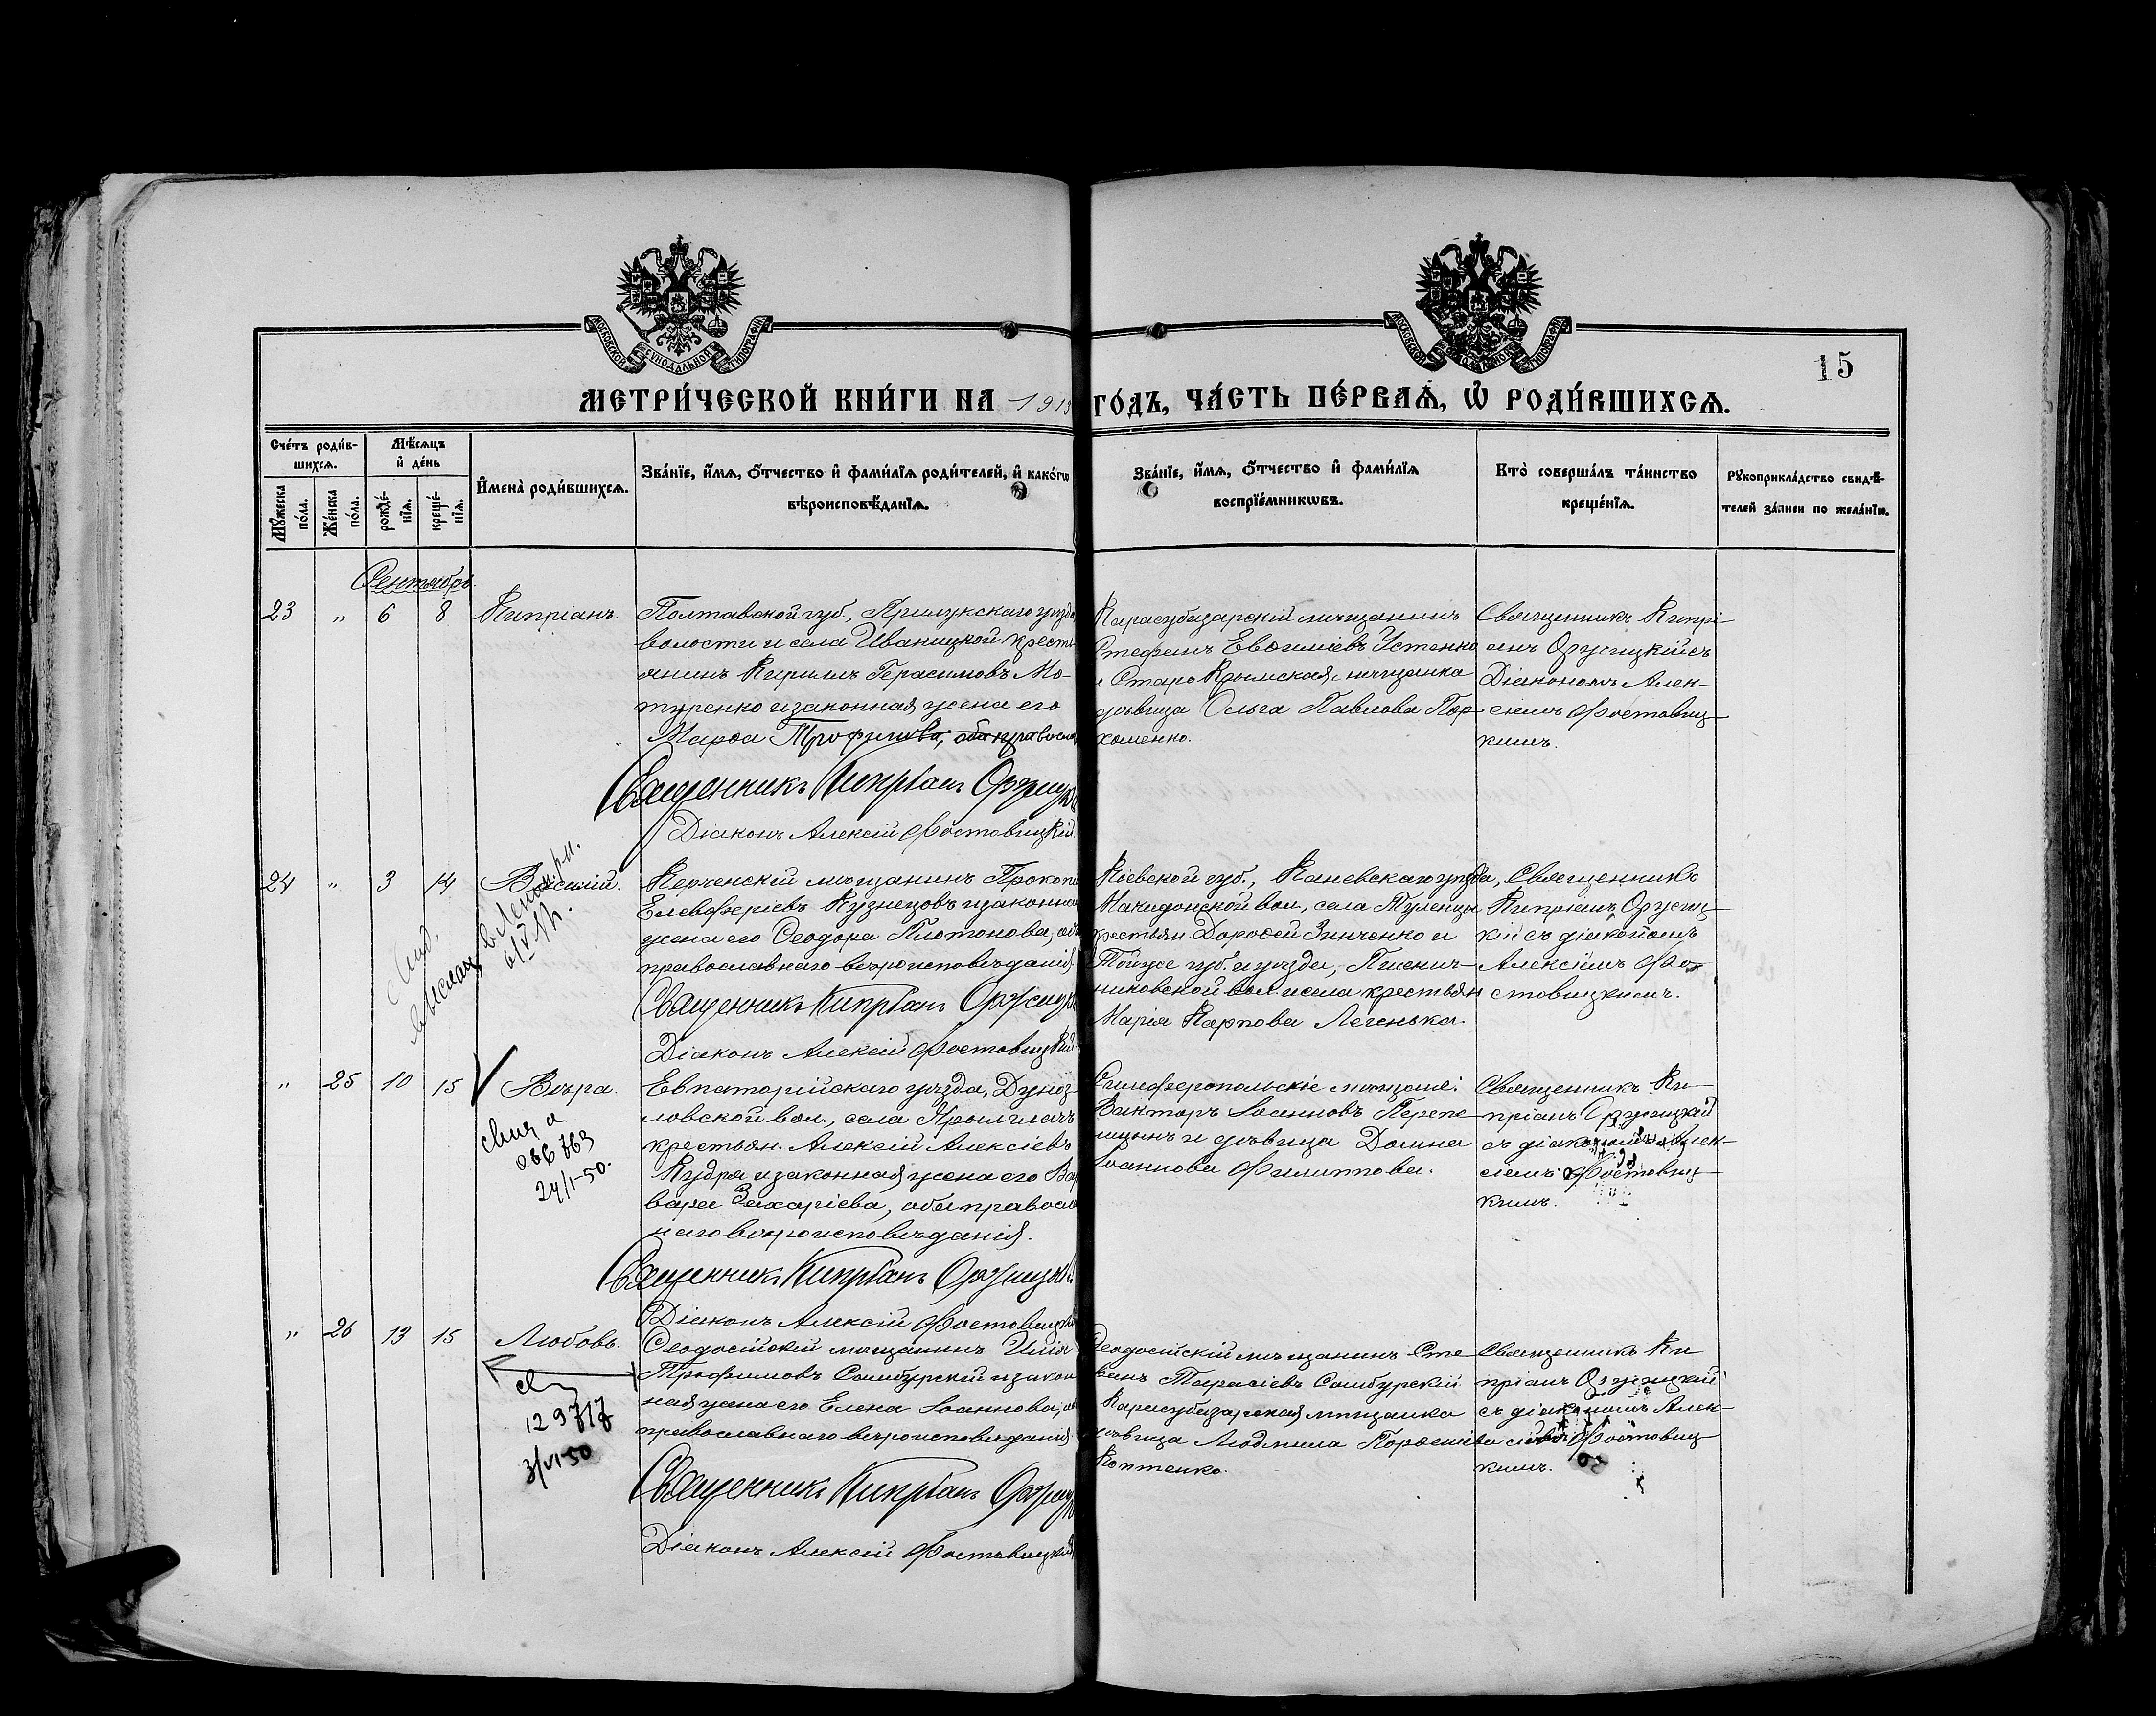 МОСКОВСКОЙ СѴНОДАЛЬНОЙ ТИПОГРАФІИ
МОСКОВСКОЙ ТИПОГРАФІИ
15
МЕТРИ́ЧЕСКОЙ КНИ́ГИ НА 1913 ГО́ДЪ, ЧА́СТЬ ПЕ́РВАѦ, Ѽ РОДИ́ВШИХСѦ.
Сче́тъ роди́в-
шихсѧ.
Мѣ́сѧцъ
и҆ де́нь
Мꙋ́жеска
по́ла.
Же́нска
по́ла.
рожде́-
нїѧ.
креще́-
нїѧ.
И҆мена̀ роди́вшихсѧ.
Зва́нїе, и҆́мѧ, ѻ҆́тчество и҆ фами́лїѧ роди́телей, и҆ како́гѡ
вѣроисповѣ́данїѧ.
Зва́нїе, и҆́мѧ, ѻ҆́тчество и҆ фами́лїѧ
воспрїе́мникѡвъ.
Кто̀ соверша́лъ та́инство
креще́нїѧ.
Рꙋкоприкла́дство свидѣ́-
телей за́писи по жела́нїю.
Сентябрь
23 " 6 8 Кипріанъ.
Полтавской губ., Прилукскаго уѣзда
волости и села Иваницкой кресть
янинъ Кириллъ Герасимовъ Мо-
туренко и законная жена его
Марѳа Трофимова, оба правосл
Священникъ Кипріанъ
Діаконъ Алексій Фостовицкій
Карасубазарскій мѣщанинъ
Стефанъ Евѳиміевъ Устенко
и Старо Крымская мѣщанка
дѣвица Ольга Павлова Пор-
хоменко.
Священникъ Кипрі-
анъ съ
Діакономъ Алек-
сіемъ Фостовиц-
кимъ.
24 " 3 14 Василій.
6/V
Керченскій мѣщанинъ Прокопій
Елевферіевъ Кузнецовъ и законная
жена его Ѳеодора Платонова, оба
православнаго вѣроисповѣданія
Священникъ Кипріанъ
Діаконъ Алексій Фостовицкій
Кіевской губ., Каневскаго уѣзда,
Македонской вол., села Туленцы
крестьян. Дороѳей Зинченко и
Тойже губ. и уѣзда, Пшенич-
никовской вол. и села крестьян
Марія Карпова Легенька.
Священникъ
Кипріанъ
кій съ діакономъ
Алексіемъ Фо-
стовицкимъ.
" 25 10 15 Вѣра.
066763
24/I-50.
Евпаторійскаго уѣзда, Дуноз-
ловской вол., села
крестьян. Алексій Алексіевъ
Кудря и законная жена его Вар
вара Захаріева, оба правосл
наго вѣроисповѣданія.
Священникъ Кипріанъ
Діаконъ Алексій Фостовицкій
Симферопольскіе мѣщане:
Викторъ Іоанновъ Перепе-
лицынъ и дѣвица Домна
Іоаннова Филиппова.
Священникъ Ки-
пріанъ
съ діакономъ Алек-
сіемъ Фостовиц-
кимъ.
" 26 13 15 Любовь.
129717
3/VI-50
Ѳеодосійскій мѣщанинъ Илія
Трофимовъ Самбурскій и закон
ная жена его Елена Іоаннова, оба
православнаго вѣроисповѣданія
Священникъ Кипріанъ
Діаконъ Алексій Фостовицкій
Ѳеодосійскій мѣщанинъ Сте
фанъ Тарасіевъ Самбурскій
Карасубазарская мѣщанка
дѣвица Людмила
Коптенко.
Священникъ Ки
пріанъ
съ діакономъ Алек-
сіемъ Фостовиц
кимъ.